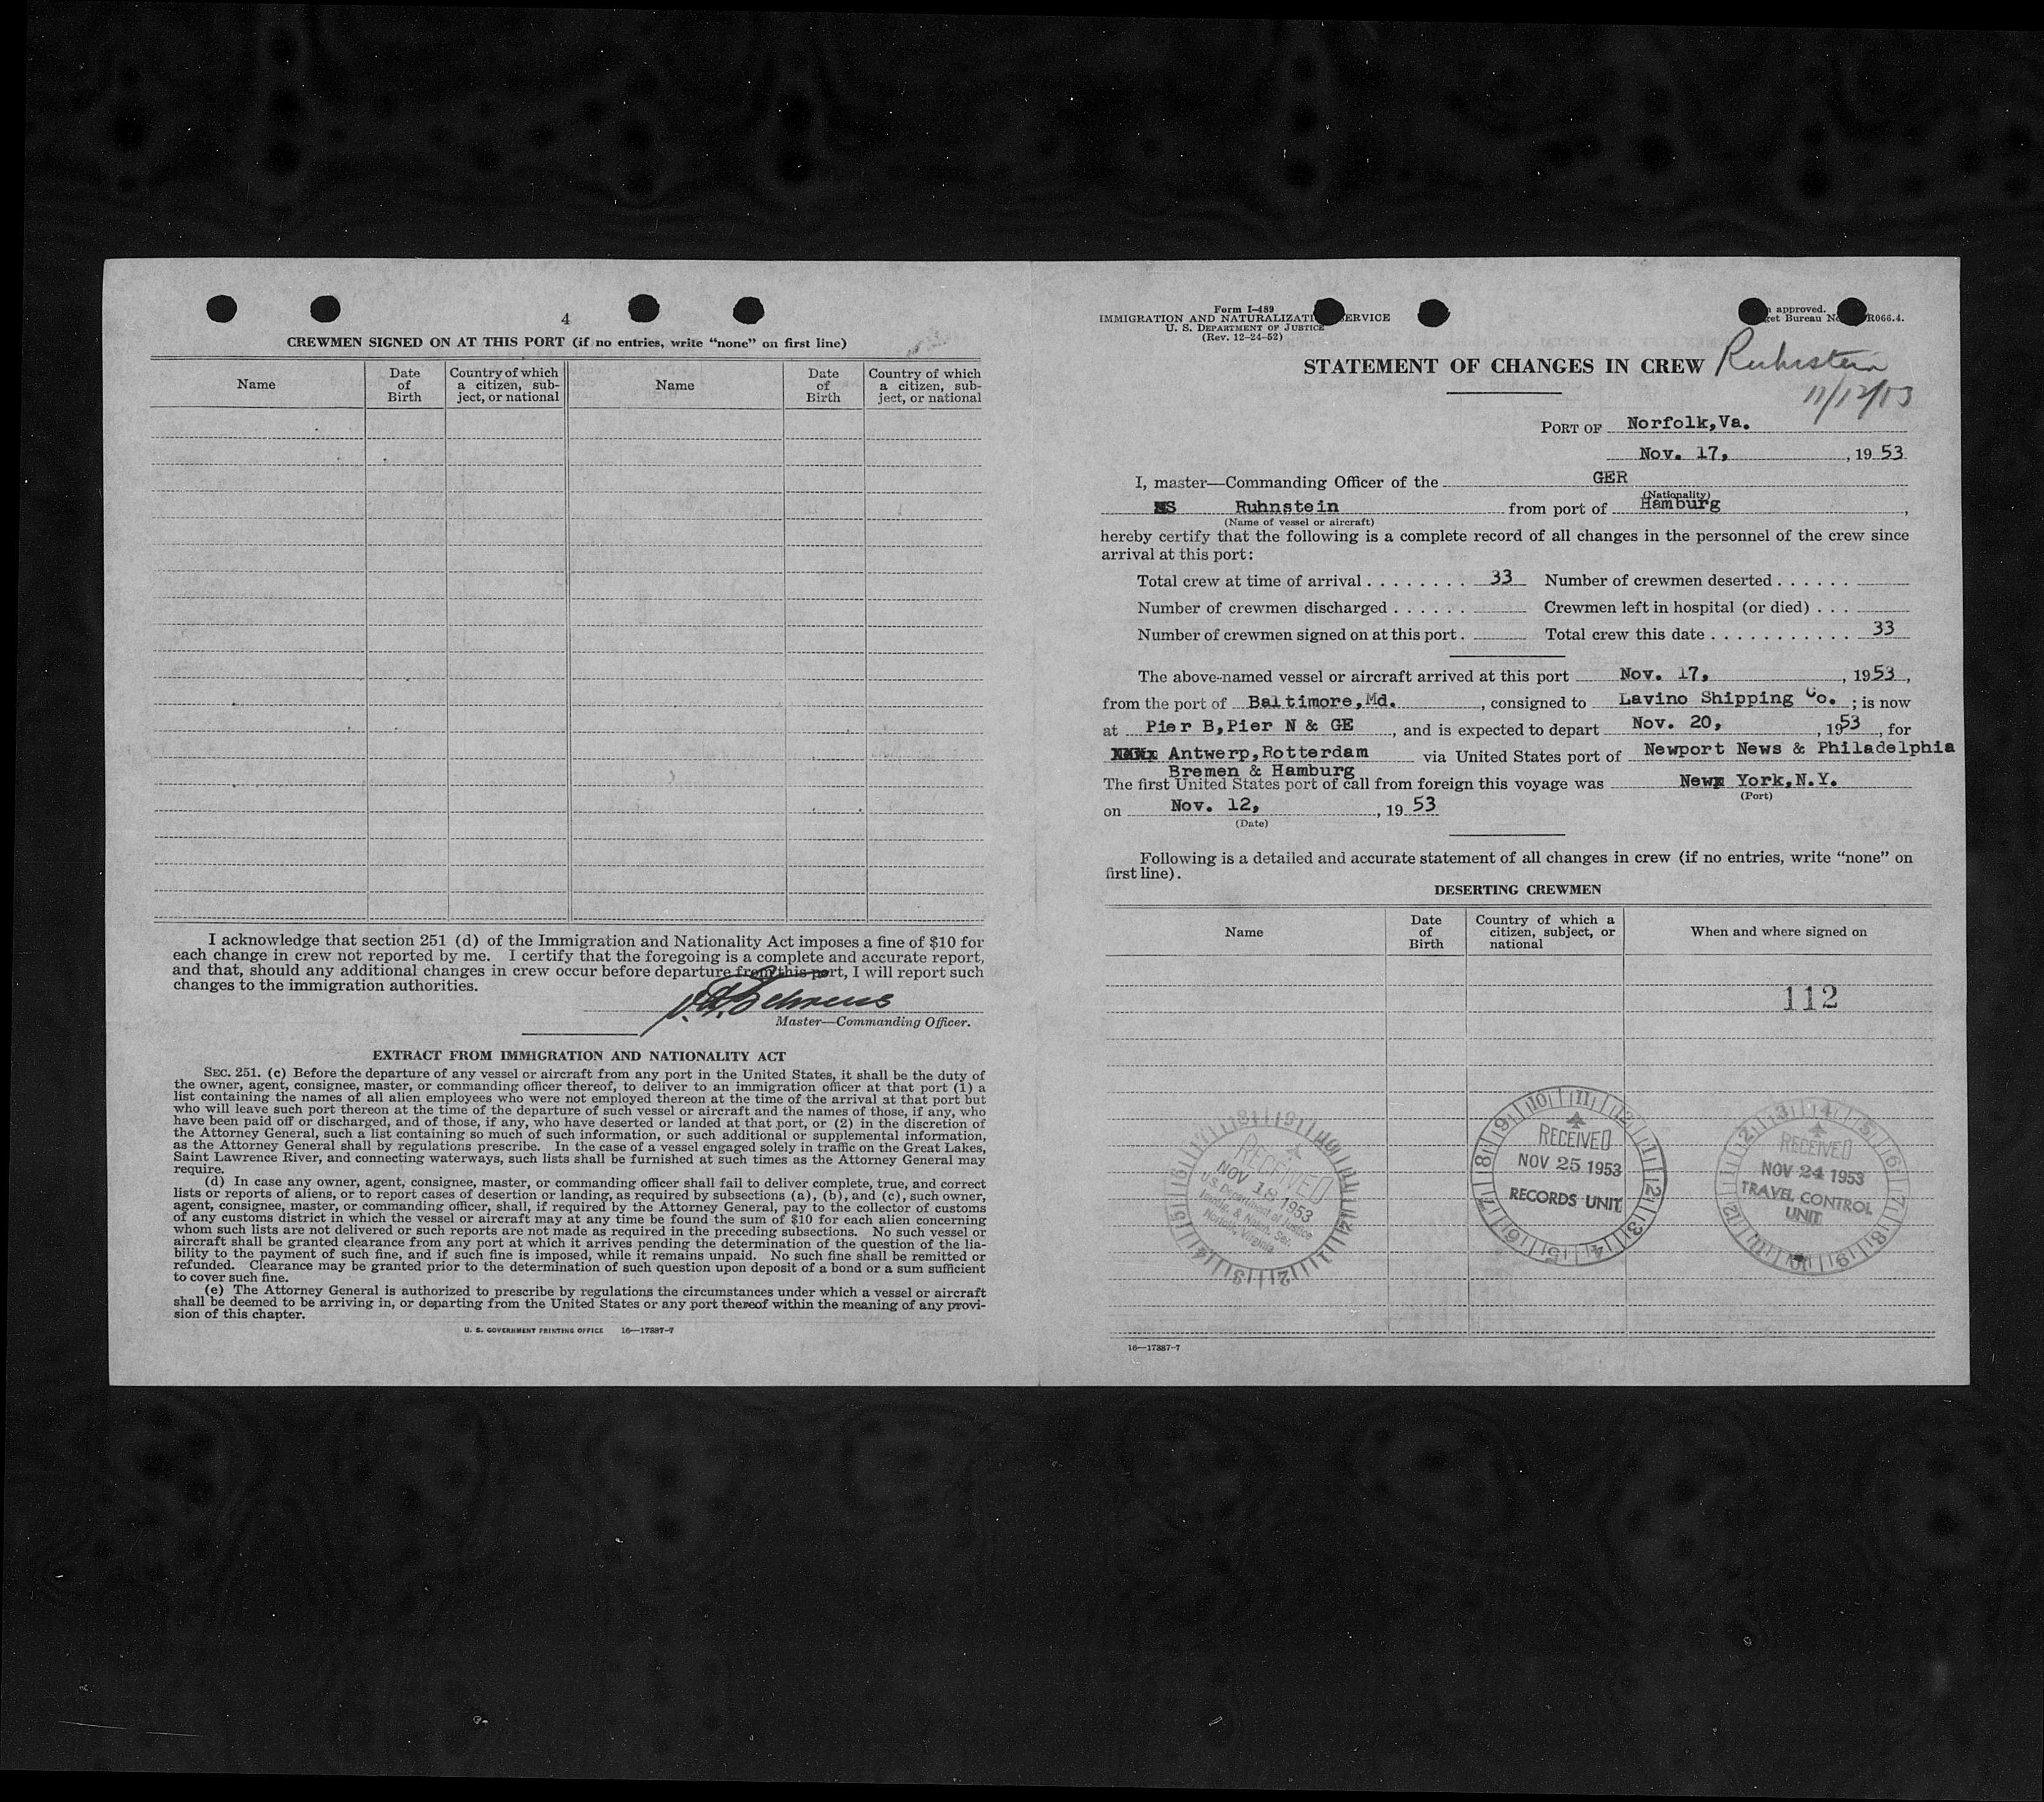 4
CREWMEN SIGNED ON AT THIS PORT (if no entries, write “none” on first line)
Name
Date of Birth
Country of which a citizen, sub-ject, or national
Name
Date of Birth
Country of which a citizen, sub-ject, or national
I acknowledge that section 251 (d) of the Immigration and Nationality Act imposes a fine of $10 for
each change in crew not reported by me. I certify that the foregoing is a complete and accurate report,
and that, should any additional changes in crew occur before departure from this port, I will report such
changes to the immigration authorities.
Master—Commanding Officer.
EXTRACT FROM IMMIGRATION AND NATIONALITY ACT
SEC. 251. (c) Before the departure of any vessel or aircraft from any port in the United States, it shall be the duty of
the owner, agent, consignee, master, or commanding officer thereof, to deliver to an immigration officer at that port (1) a
list containing the names of all alien employees who were not employed thereon at the time of the arrival at that port but
who will leave such port thereon at the time of the departure of such vessel or aircraft and the names of those, if any, who
have been paid off or discharged, and of those, if any, who have deserted or landed at that port, or (2) in the discretion of
the Attorney General, such a list containing so much of such information, or such additional or supplemental information,
as the Attorney General shall by regulations prescribe. In the case of a vessel engaged solely in traffic on the Great Lakes,
Saint Lawrence River, and connecting waterways, such lists shall be furnished at such times as the Attorney General may
require.
(d) In case any owner, agent, consignee, master, or commanding officer shall fail to deliver complete, true, and correct
lists or reports of aliens, or to report cases of desertion or landing, as required by subsections (a), (b), and (c), such owner,
agent, consignee, master, or commanding officer, shall, if required by the Attorney General, pay to the collector of customs
of any customs district in which the vessel or aircraft may at any time be found the sum of $10 for each alien concerning
whom such lists are not delivered or such reports are not made as required in the preceding subsections. No such vessel or
aircraft shall be granted clearance from any port at which it arrives pending the determination of the question of the lia-
bility to the payment of such fine, and if such fine is imposed, while it remains unpaid. No such fine shall be remitted or
refunded. Clearance may be granted prior to the determination of such question upon deposit of a bond or a sum sufficient
to cover such fine.
(e) The Attorney General is authorized to prescribe by regulations the circumstances under which a vessel or aircraft
shall be deemed to be arriving in, or departing from the United States or any port thereof within the meaning of any provi-
sion of this chapter.
U. S. GOVERNMENT PRINTING OFFICE 16—17387-7
Form I-489
IMMIGRATION AND NATURALIZATI ERVICE
U. S. DEPARTMENT OF JUSTICE
(Rev. 12-24-52)
approved.
et Bureau N R066.4.
STATEMENT OF CHANGES IN CREW Ruhnstein
11/12/53
PORT OF Norfolk,Va.
Nov. 17, , 19 53
I, master—Commanding Officer of the GER
(Nationality)
MS Ruhnstein from port of Hamburg ,
(Name of vessel or aircraft)
hereby certify that the following is a complete record of all changes in the personnel of the crew since
arrival at this port:
Total crew at time of arrival . . . . . . . . 33 Number of crewmen deserted . . . . . .
Number of crewmen discharged . . . . . . Crewmen left in hospital (or died) . . .
Number of crewmen signed on at this port . Total crew this date . . . . . . . . . . . 33
The above-named vessel or aircraft arrived at this port Nov. 17, , 1953 ,
from the port of Baltimore,Md. , consigned to Lavino Shipping Co. ; is now
at Pier B,Pier N & GE , and is expected to depart Nov. 20, , 1953 , for
Antwerp,Rotterdam via United States port of Newport News & Philadelphia
Bremen & Hamburg
The first United States port of call from foreign this voyage was New York,N.Y.
(Port)
on Nov. 12, , 19 53
(Date)
Following is a detailed and accurate statement of all changes in crew (if no entries, write “none” on
first line).
DESERTING CREWMEN
Name
Date of Birth
Country of which a citizen, subject, or national
When and where signed on
112
RECEIVED
NOV 18 1953
U.S. Department of Justice
Immig. & Natzn. Ser.
Norfolk, Virginia
RECEIVED
NOV 25 1953
RECORDS UNIT
RECEIVED
NOV 24 1953
TRAVEL CONTROL
UNIT
16—17387-7